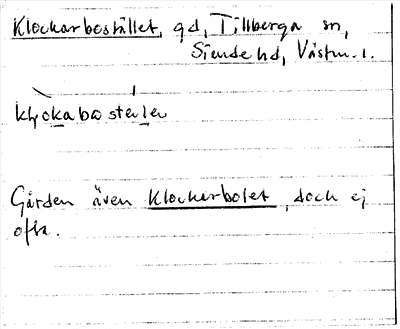 Klockarbostället, gd, Tillberga sn,
Siende hd, Västm. l.
klyckabåstelle
Gården även Klockarbolet, doch ej
ofta.